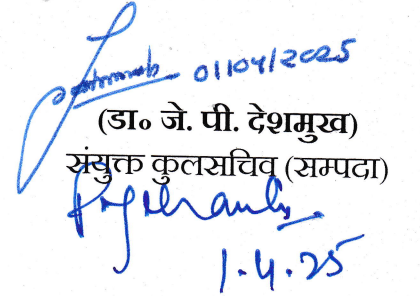 01/04/2025
(डा० जे. पी. देशमुख)
संयुक्त कुलसचिव (सम्पदा)
1.4.25